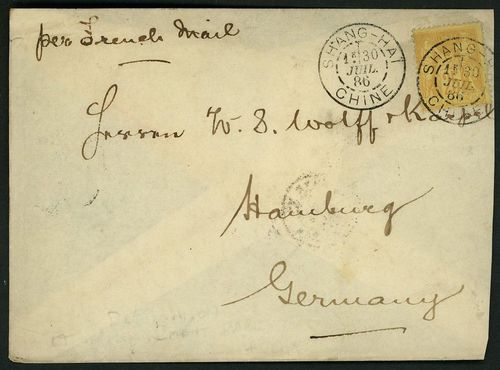 per French Mail
SHANG-HAI
30
JUIL.
86
CHINE
SHANG-HAI
30
JUIL.
86
Herren W. S. Wolff & Kapel
Hamburg
Germany